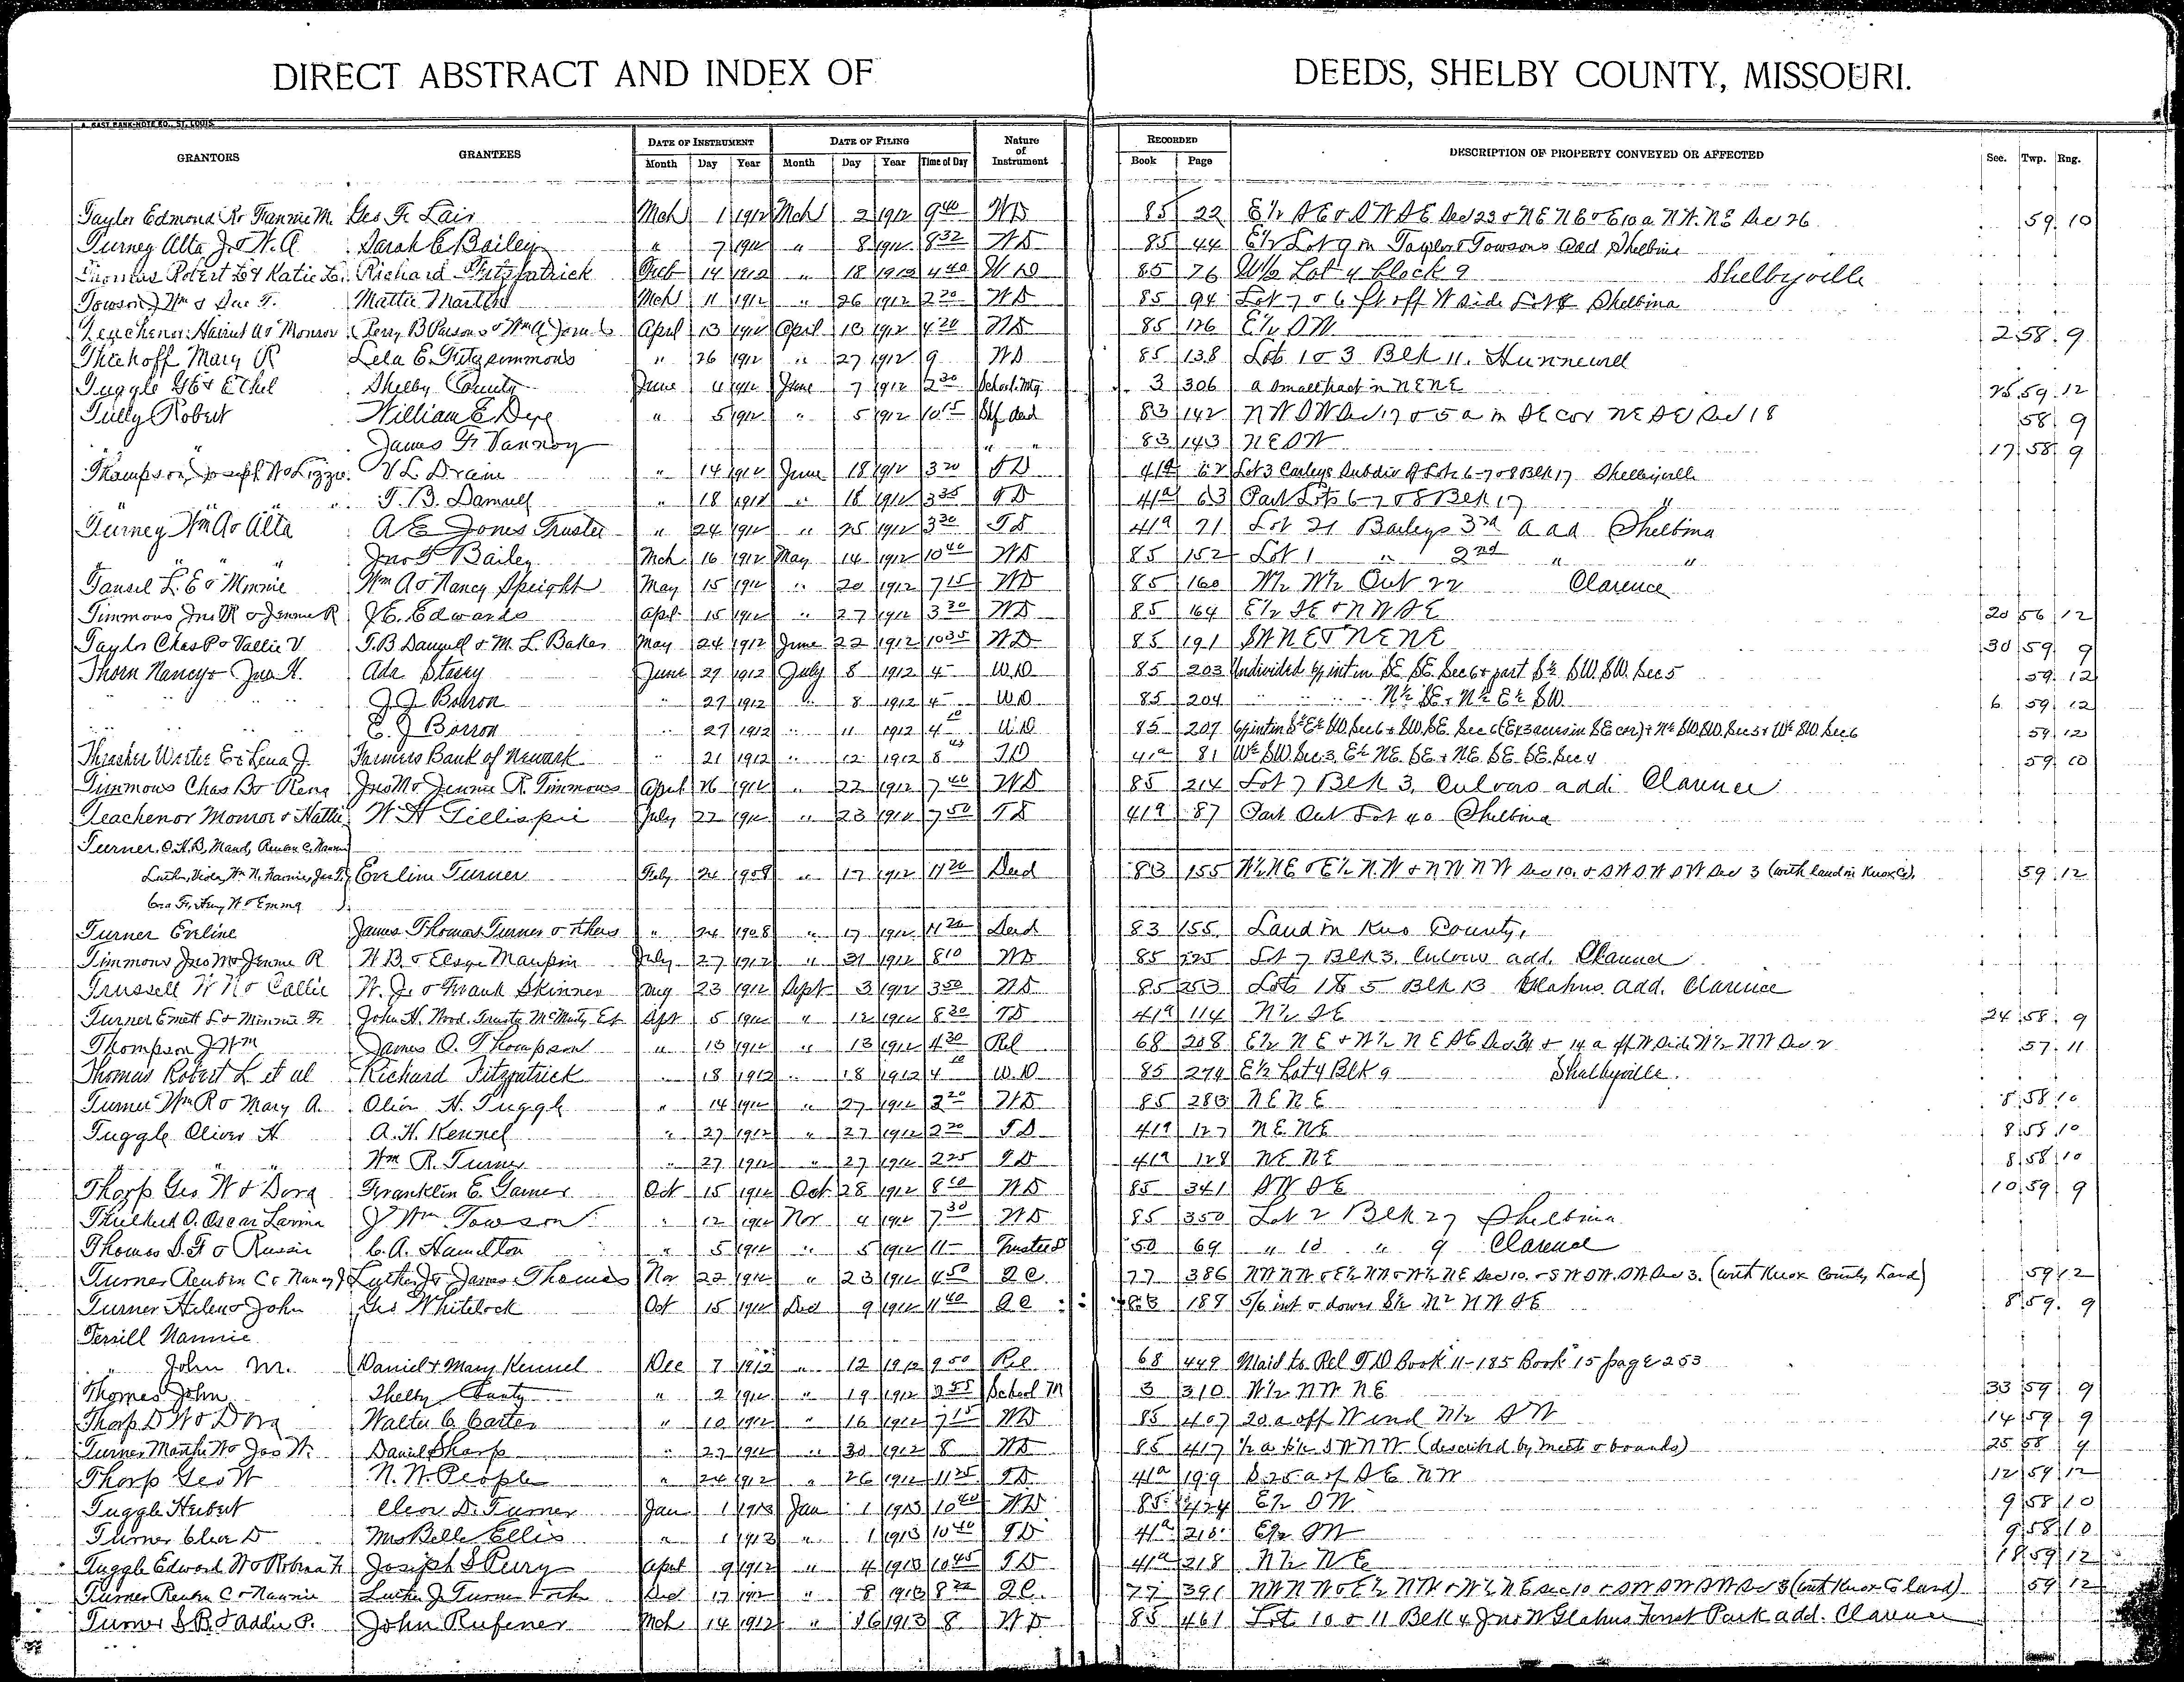 DIRECT ABSTRACT AND INDEX OF DEEDS, SHELBY COUNTY, MISSOURI.
GRANTORS GRANTEES DATE OF INSTRUMENT DATE OF FILING Nature of Instrument RECORDED DESCRIPTION OF PROPERTY CONVEYED OR AFFECTED Sec. Twp. Rng.
Month Day Year Month Day Year Time of Day Book Page
Taylor Edmond R & Fannie M. Geo F. Lair Mch 1 1912 Mch 2 1912 9 40 WD 85 22 E½ SE & SW SE Sec 23 & NE NE & E 10 a NW NE Sec 26 59 10
Turney Alta J. & W. A Sarah E Bailey " 7 1912 " 8 1912 8 32 WD 85 44 E½ Lot 9 in Taylor & Towsons add Shelbina
Thomas Robert L & Katie L. Richard Fitzpatrick Feb 14 1912 " 18 1912 4 40 WD 85 76 W½ Lot 4 block 9 Shelbyville
Towson J Wm & Sue F. Mattie Martin Mch 11 1912 " 26 1912 2 20 WD 85 94 Lot 7 & 6 ft off W side Lot 8 Shelbina
Monroe Perry B Parsons & Wm A April 13 1912 April 13 1912 4 20 WD 85 126 E½ SW 2 58 9
Thiehoff Mary R Lela E. Fitzsimmons " 26 1912 " 27 1912 9 WD 85 138 Lots 1 & 3 Blk 11. Hunnewell
Tuggle & Ethel Shelby County June 4 1912 June 7 1912 2 30 School Mtg 3 306 a small tract in NE NE 25 59 12
Tully Robert William E Dye " 5 1912 " 5 1912 10 15 Shf deed 83 142 NW SW Sec 17 & 5 a in SE cor NE SE Sec 18 58 9
" James F. Vannoy " " 83 143 NE SW 17 58 9
Thompson Joseph W & Lizzie V. L. Drain " 14 1912 June 18 1912 3 20 TD 41a 62 Lot 3 Carleys Subdiv of Lots 6-7 & 8 Blk 17 Shelbyville
" " T. B. Damrell " 18 1912 " 18 1912 3 35 TD 41a 63 Part Lots 6-7 & 8 Blk 17 "
Turney Wm A & Alta A E Jones Trustee " 24 1912 " 25 1912 3 30 TD 41a 71 Lot 21 Baileys 3rd add Shelbina
" " Jno F Bailey Mch 16 1912 May 14 1912 10 40 WD 85 152 Lot 1 " 2nd " "
Tansil L. E & Minnie Wm A & Nancy Speight May 15 1912 " 20 1912 7 15 WD 85 160 W½ W½ Out 22 Clarence
Timmons Jno M & Jennie R V E. Edwards April 15 1912 " 27 1912 3 30 WD 85 164 E½ SE & NW SE 20 56 12
Taylor Chas P & Vallie V T. B Damrell & M. L. Baker May 24 1912 June 22 1912 10 35 WD 85 191 SW NE & NE NE 30 59 9
Thorn Nancy & Jno H. Ada Stacy June 29 1912 July 8 1912 4 WD 85 203 Undivided int in SE SE Sec 6 & part S½ SW SW Sec 5 59 12
" " J. J Borron " 27 1912 " 8 1912 4 WD 85 204 N½ SE & N½ E½ SW 6 59 12
" " E. J Borron " 27 1912 " 11 1912 4 10 WD 85 207 59 12
Thrasher & Lena J. Farmers Bank of Newark " 21 1912 " 12 1912 8 TD 41a 81 W½ SW Sec 3, E½ NE SE & NE SE SE Sec 4 59 10
Timmons Chas B & Rena Jno M & Jennie R. Timmons April 26 1912 " 22 1912 7 40 WD 85 214 Lot 7 Blk 3, Culvers add. Clarence
Teachenor Monroe & Hattie W. H Gillispie July 22 1912 " 23 1912 7 50 TD 41a 87 Part Out Lot 40 Shelbina
Turner, O. H. B, Maud, Reuben C. Nannie
Luther, Viola, Wm N. Nannie, Jas T. Eveline Turner July 24 1908 " 17 1912 11 20 Deed 83 155 W½ NE & E½ NW & NW NW Sec 10. & SW SW SW Sec 3 (with land in Knox Co). 59 12
Emma
Turner Eveline James Thomas Turner & others " 24 1908 " 17 1912 11 20 Deed 83 155 Land in Knox County,
Timmons Jno M & Jennie R W. B. & Elsye Maupin July 27 1912 " 31 1912 8 10 WD 85 225 Lot 7 Blk 3, Culvers add. Clarence
Trussell W N & Callie W. J. & Frank Skinner Aug 23 1912 Sept 3 1912 3 50 WD 85 253 Lots 1 to 5 Blk 13 Glahns add. Clarence
Turner Emett L & Minnie F. John H. Wood. Trustee Sept 5 1912 " 12 1912 8 30 TD 41a 114 N½ SE 24 58 9
Thompson J Wm James O. Thompson " 13 1912 " 13 1912 4 30 Rel 68 208 57 11
Thomas Robert L et al Richard Fitzpatrick " 18 1912 " 18 1912 4 10 WD 85 274 E½ Lot 4 Blk 9 Shelbyville.
Turner Wm R & Mary A. Oliver H. Tuggle " 14 1912 " 27 1912 2 20 WD 85 283 NE NE 8 58 10
Tuggle Oliver H A. H. Kennel " 27 1912 " 27 1912 2 20 TD 41a 127 NE NE 8 58 10
" " Wm R. Turner " 27 1912 " 27 1912 2 25 TD 41a 128 NE NE 8 58 10
Thorp Geo W & Dora Franklin E. Garner Oct 15 1912 Oct 28 1912 8 WD 85 341 SW SE 10 59 9
O. Oscar J Wm Towson " 12 1912 Nov 4 1912 7 30 WD 85 350 Lot 2 Blk 27 Shelbina
Thomas D. F & C. A. Hamilton " 5 1912 " 5 1912 11 Trustee D 50 69 " 10 " 9 Clarence
Turner Reuben C & Nancy J Luther J & James Thomas Nov 22 1912 " 23 1912 4 50 QC. 77 386 NW NW & E½ NW & W½ NE Sec 10. & SW SW. SW Sec 3. (with Knox County Land) 59 12
Turner Helen & John Geo Whitelock Oct 15 1912 Dec 9 1912 11 40 QC 83 189 5/6 int & dower S½ N½ NW SE 8 59 9
Terrill Nannie
" John M. Daniel & Mary Kennel Dec 7 1912 " 12 1912 9 50 Rel 68 449 Maid to Rel TD Book 11-185 Book 15 page 253
Thomas John Shelby County " 2 1912 " 19 1912 3 55 School M 3 310 W½ NW NE 33 59 9
Thorp D W & Dora Walter C Carter " 10 1912 " 16 1912 7 15 WD 85 407 20 a off W end N½ SW 14 59 9
Turner W & Jos W. Daniel Sharp " 27 1912 " 30 1912 8 WD 85 417 SW NW (described by meets & bounds) 25 58 9
Thorp Geo W N. W. People " 24 1912 " 26 1912 11 25 TD 41a 199 S 25 a of SE NW 12 59 12
Tuggle Hubert Cleor D. Turner Jan 1 1913 Jan 1 1913 10 40 WD 85 424 E½ SW 9 58 10
Turner Cleor D Mrs Belle Ellis " 1 1913 " 1 1913 10 40 TD 41a 215 E½ SW 9 58 10
Tuggle Edward W & Joseph S Perry April 9 1912 " 4 1913 10 45 TD 41a 218 N½ NE 18 59 12
Turner Reuben C & Nannie Luther J Turner & others Dec 17 1912 " 8 1913 8 QC. 77 391 NW NW & E½ NW & W½ NE Sec 10 & SW SW SW Sec 3 (with Knox Co land) 59 12
Turner S B & Addie P. John Rufener Mch 14 1912 " 16 1913 8 WD 85 461 Lots 10 & 11 Blk 4 Jno W Glahns Forest Park add. Clarence